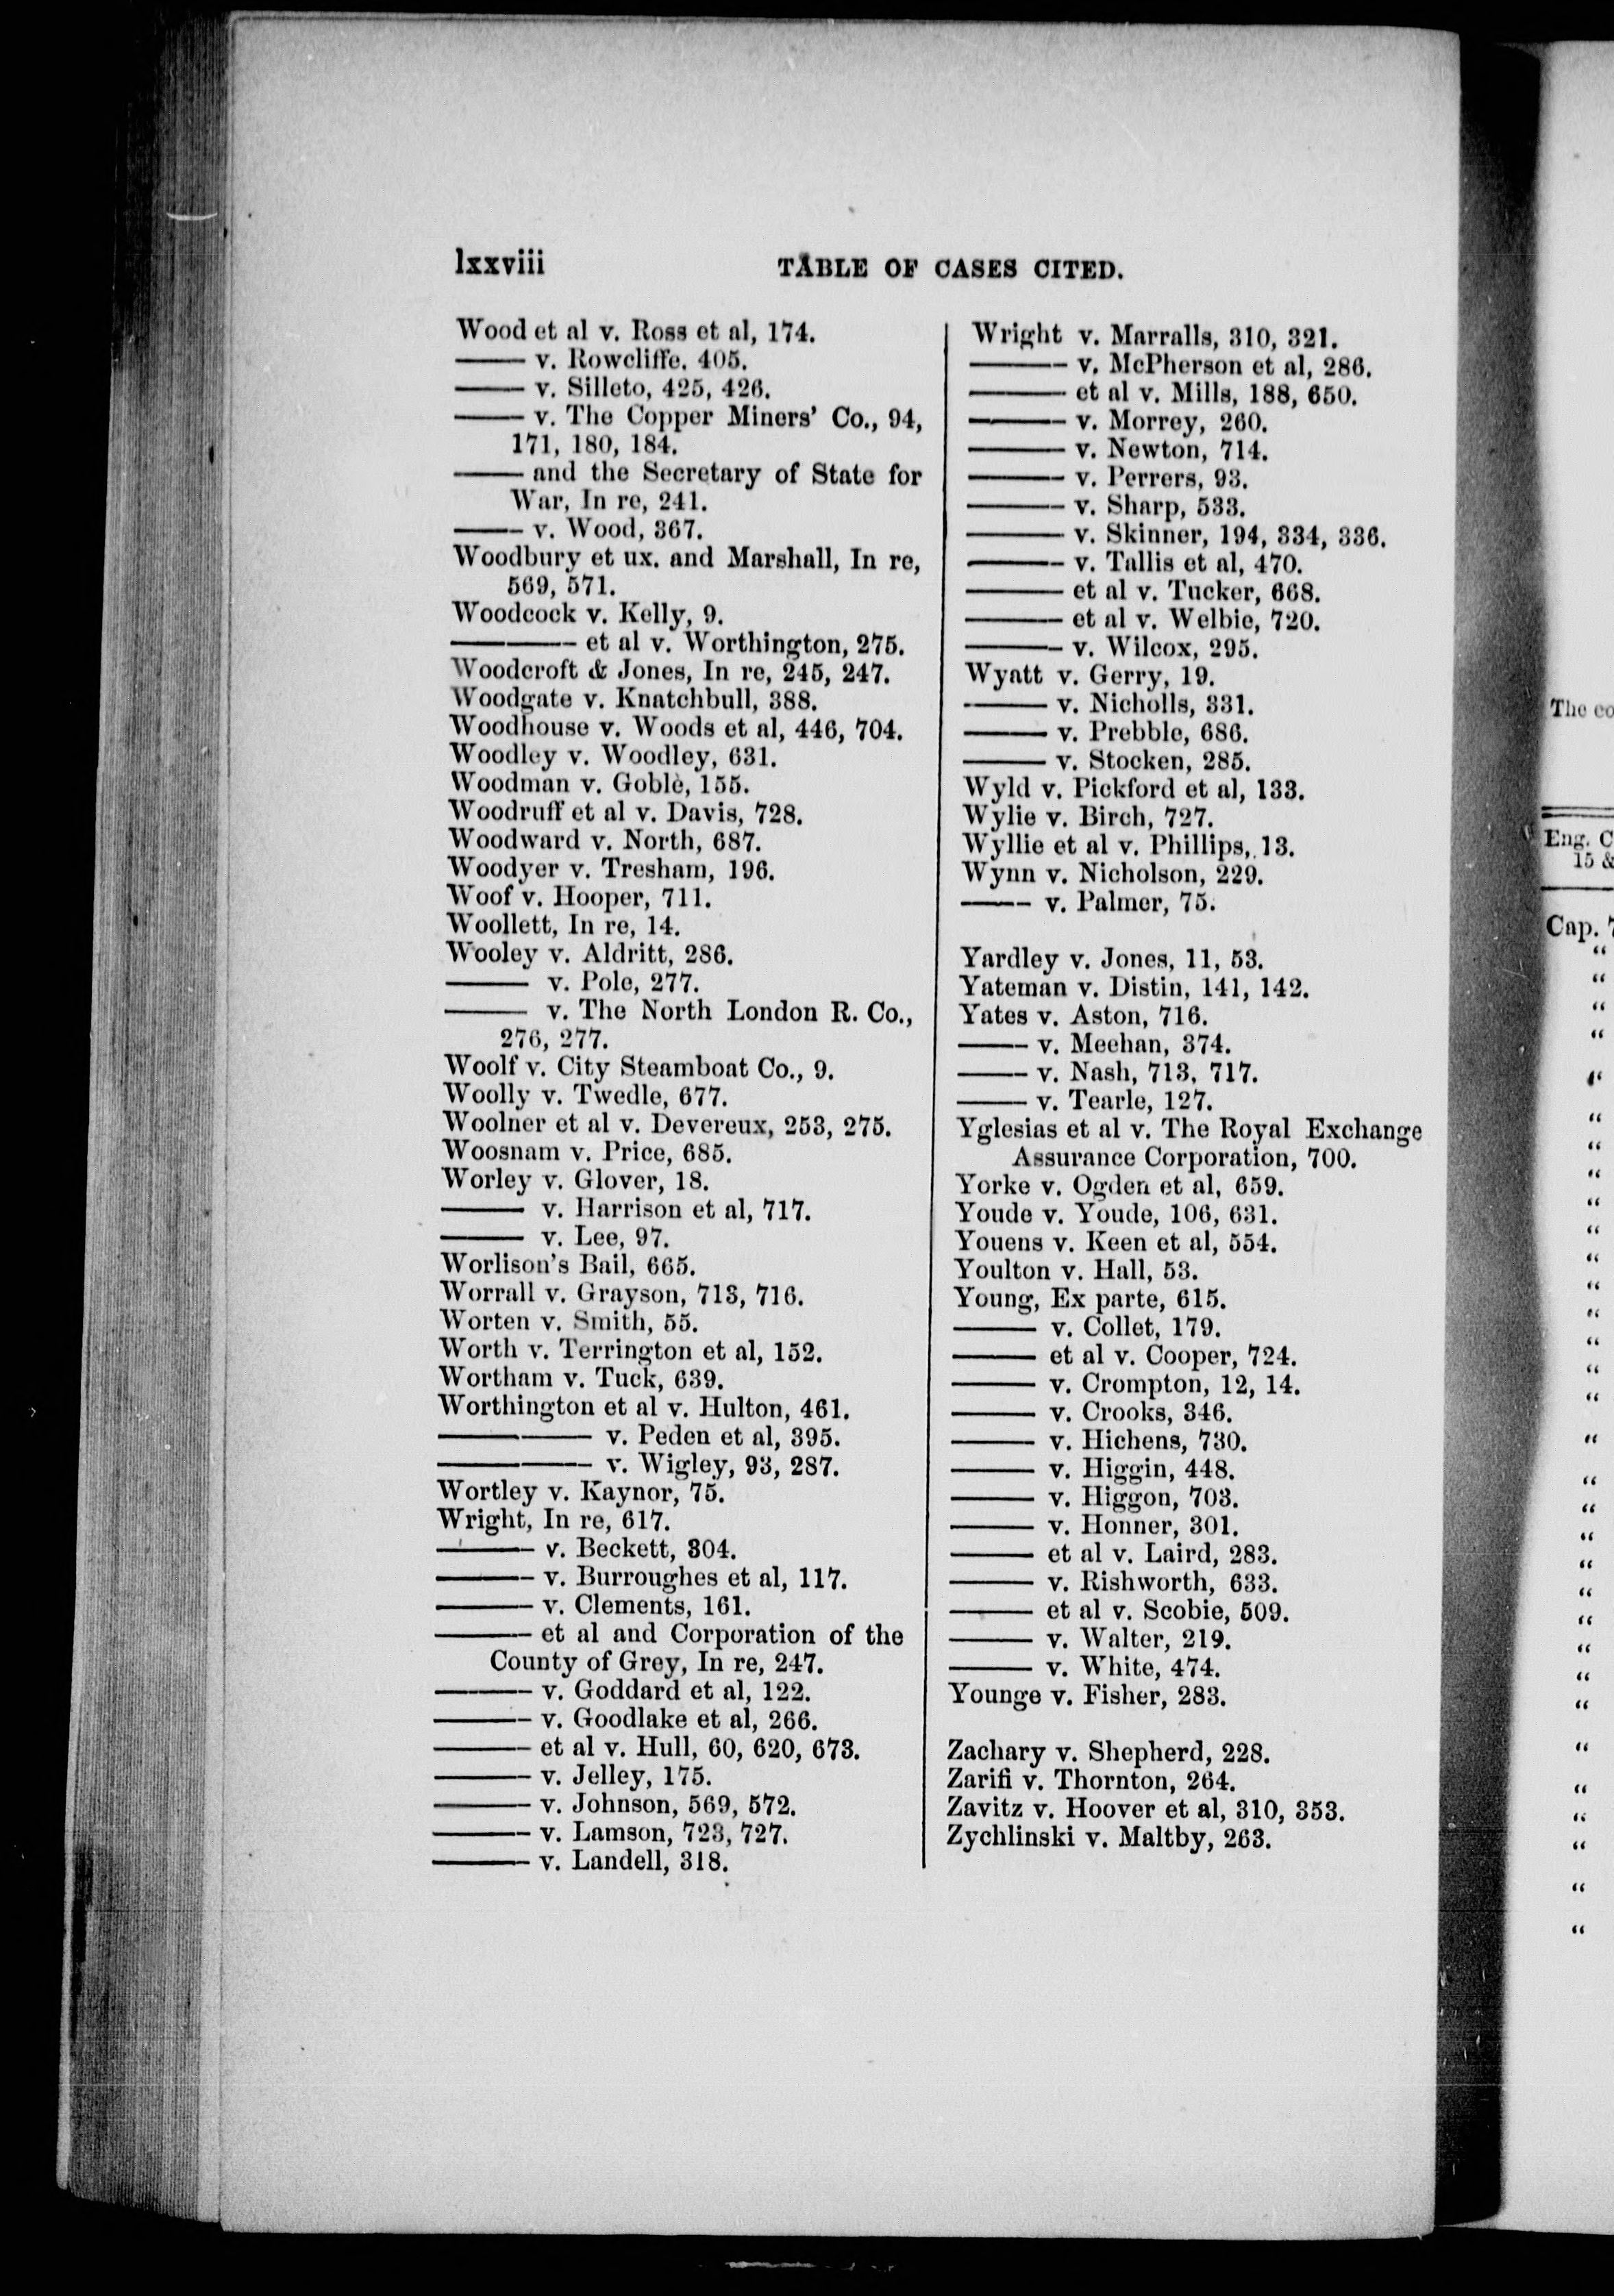 lxxviii TABLE OF CASES CITED.
Wood et al v. Ross et al, 174.
——— v. Rowcliffe, 405.
——— v. Silleto, 425, 426.
——— v. The Copper Miners' Co., 94,
171, 180, 184.
——— and the Secretary of State for
War, In re, 241.
——— v. Wood, 367.
Woodbury et ux. and Marshall, In re,
569, 571.
Woodcock v. Kelly, 9.
——— et al v. Worthington, 275.
Woodcroft & Jones, In re, 245, 247.
Woodgate v. Knatchbull, 388.
Woodhouse v. Woods et al, 446, 704.
Woodley v. Woodley, 631.
Woodman v. Goble, 155.
Woodruff et al v. Davis, 728.
Woodward v. North, 687.
Woodyer v. Tresham, 196.
Woof v. Hooper, 711.
Woollett, In re, 14.
Wooley v. Aldritt, 286.
——— v. Pole, 277.
——— v. The North London R. Co.,
276, 277.
Woolf v. City Steamboat Co., 9.
Woolly v. Twedle, 677.
Woolner et al v. Devereux, 253, 275.
Woosnam v. Price, 685.
Worley v. Glover, 18.
——— v. Harrison et al, 717.
——— v. Lee, 97.
Worlison's Bail, 665.
Worrall v. Grayson, 713, 716.
Worten v. Smith, 55.
Worth v. Terrington et al, 152.
Wortham v. Tuck, 639.
Worthington et al v. Hulton, 461.
——— v. Peden et al, 395.
——— v. Wigley, 93, 287.
Wortley v. Kaynor, 75.
Wright, In re, 617.
——— v. Beckett, 304.
——— v. Burroughes et al, 117.
——— v. Clements, 161.
——— et al and Corporation of the
County of Grey, In re, 247.
——— v. Goddard et al, 122.
——— v. Goodlake et al, 266.
——— et al v. Hull, 60, 620, 673.
——— v. Jelley, 175.
——— v. Johnson, 569, 572.
——— v. Lamson, 723, 727.
——— v. Landell, 318.
Wright v. Marralls, 310, 321.
——— v. McPherson et al, 286.
——— et al v. Mills, 188, 650.
——— v. Morrey, 260.
——— v. Newton, 714.
——— v. Perrers, 93.
——— v. Sharp, 533.
——— v. Skinner, 194, 334, 336.
——— v. Tallis et al, 470.
——— et al v. Tucker, 668.
——— et al v. Welbie, 720.
——— v. Wilcox, 295.
Wyatt v. Gerry, 19.
——— v. Nicholls, 331.
——— v. Prebble, 686.
——— v. Stocken, 285.
Wyld v. Pickford et al, 133.
Wylie v. Birch, 727.
Wyllie et al v. Phillips, 13.
Wynn v. Nicholson, 229.
——— v. Palmer, 75.
Yardley v. Jones, 11, 53.
Yateman v. Distin, 141, 142.
Yates v. Aston, 716.
——— v. Meehan, 374.
——— v. Nash, 713, 717.
——— v. Tearle, 127.
Yglesias et al v. The Royal Exchange
Assurance Corporation, 700.
Yorke v. Ogden et al, 659.
Youde v. Youde, 106, 631.
Youens v. Keen et al, 554.
Youlton v. Hall, 53.
Young, Ex parte, 615.
——— v. Collet, 179.
——— et al v. Cooper, 724.
——— v. Crompton, 12, 14.
——— v. Crooks, 346.
——— v. Hichens, 730.
——— v. Higgin, 448.
——— v. Higgon, 703.
——— v. Honner, 301.
——— et al v. Laird, 283.
——— v. Rishworth, 633.
——— et al v. Scobie, 509.
——— v. Walter, 219.
——— v. White, 474.
Younge v. Fisher, 283.
Zachary v. Shepherd, 228.
Zarifi v. Thornton, 264.
Zavitz v. Hoover et al, 310, 353.
Zychlinski v. Maltby, 263.
The
Eng.
15 &
Cap.